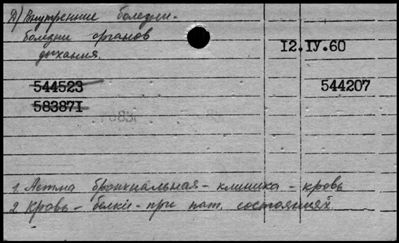 Д) Внутренние болезни.
болезни органов
дыхания.
12.IУ.60
544523
544207
583871
1. Астма бронхиальная – клиника – кровь
2. Кровь – белки – при пат. состояниях